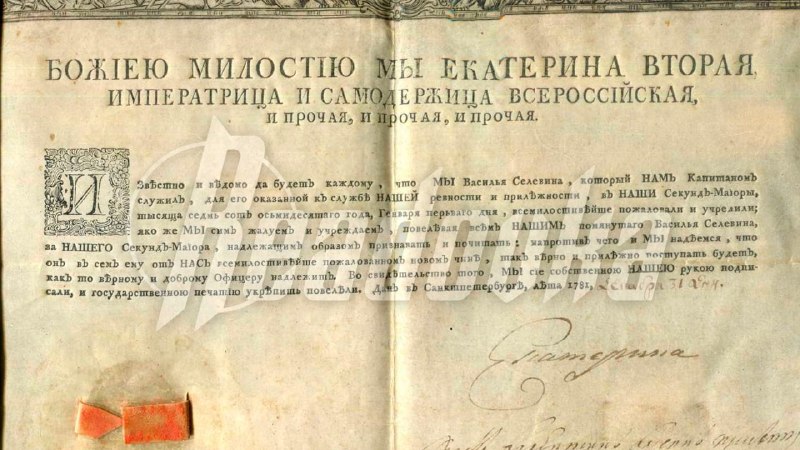 БОЖІЕЮ МИЛОСТІЮ МЫ ЕКАТЕРИНА ВТОРАЯ,
ИМПЕРАТРИЦА И САМОДЕРЖИЦА ВСЕРОССІЙСКАЯ,
И ПРОЧАЯ, И ПРОЧАЯ, И ПРОЧАЯ.
ИЗвѣстно и вѣдомо да будетъ каждому, что МЫ Василья Селевина, который НАМЪ Капитаномъ
служилъ, для его оказанной къ службѣ НАШЕЙ ревности и прилѣжности, въ НАШИ Секундъ-Маіоры,
тысяща седмь сотъ осьмидесятаго года, Генваря перваго дня, всемилостивѣйше пожаловали и учредили;
яко же МЫ симъ жалуемъ и учреждаемъ, повелѣвая всѣмъ НАШИМЪ помянутаго Василья Селевина,
за НАШЕГО Секундъ-Маіора, надлежащимъ образомъ признавать и почитать: напротивъ чего и МЫ надѣемся, что
онъ въ семъ ему отъ НАСЪ всемилостивѣйше пожалованномъ новомъ чинѣ, такъ вѣрно и прилѣжно поступать будетъ,
какъ то вѣрному и доброму Офицеру надлежитъ. Во свидѣтельство того, МЫ сіе собственною НАШЕЮ рукою подпи-
сали, и государственною печатію укрѣпить повелѣли. Данъ въ Санктпетербургѣ, лѣта 1781, Декабря 31 дня.
Екатерина